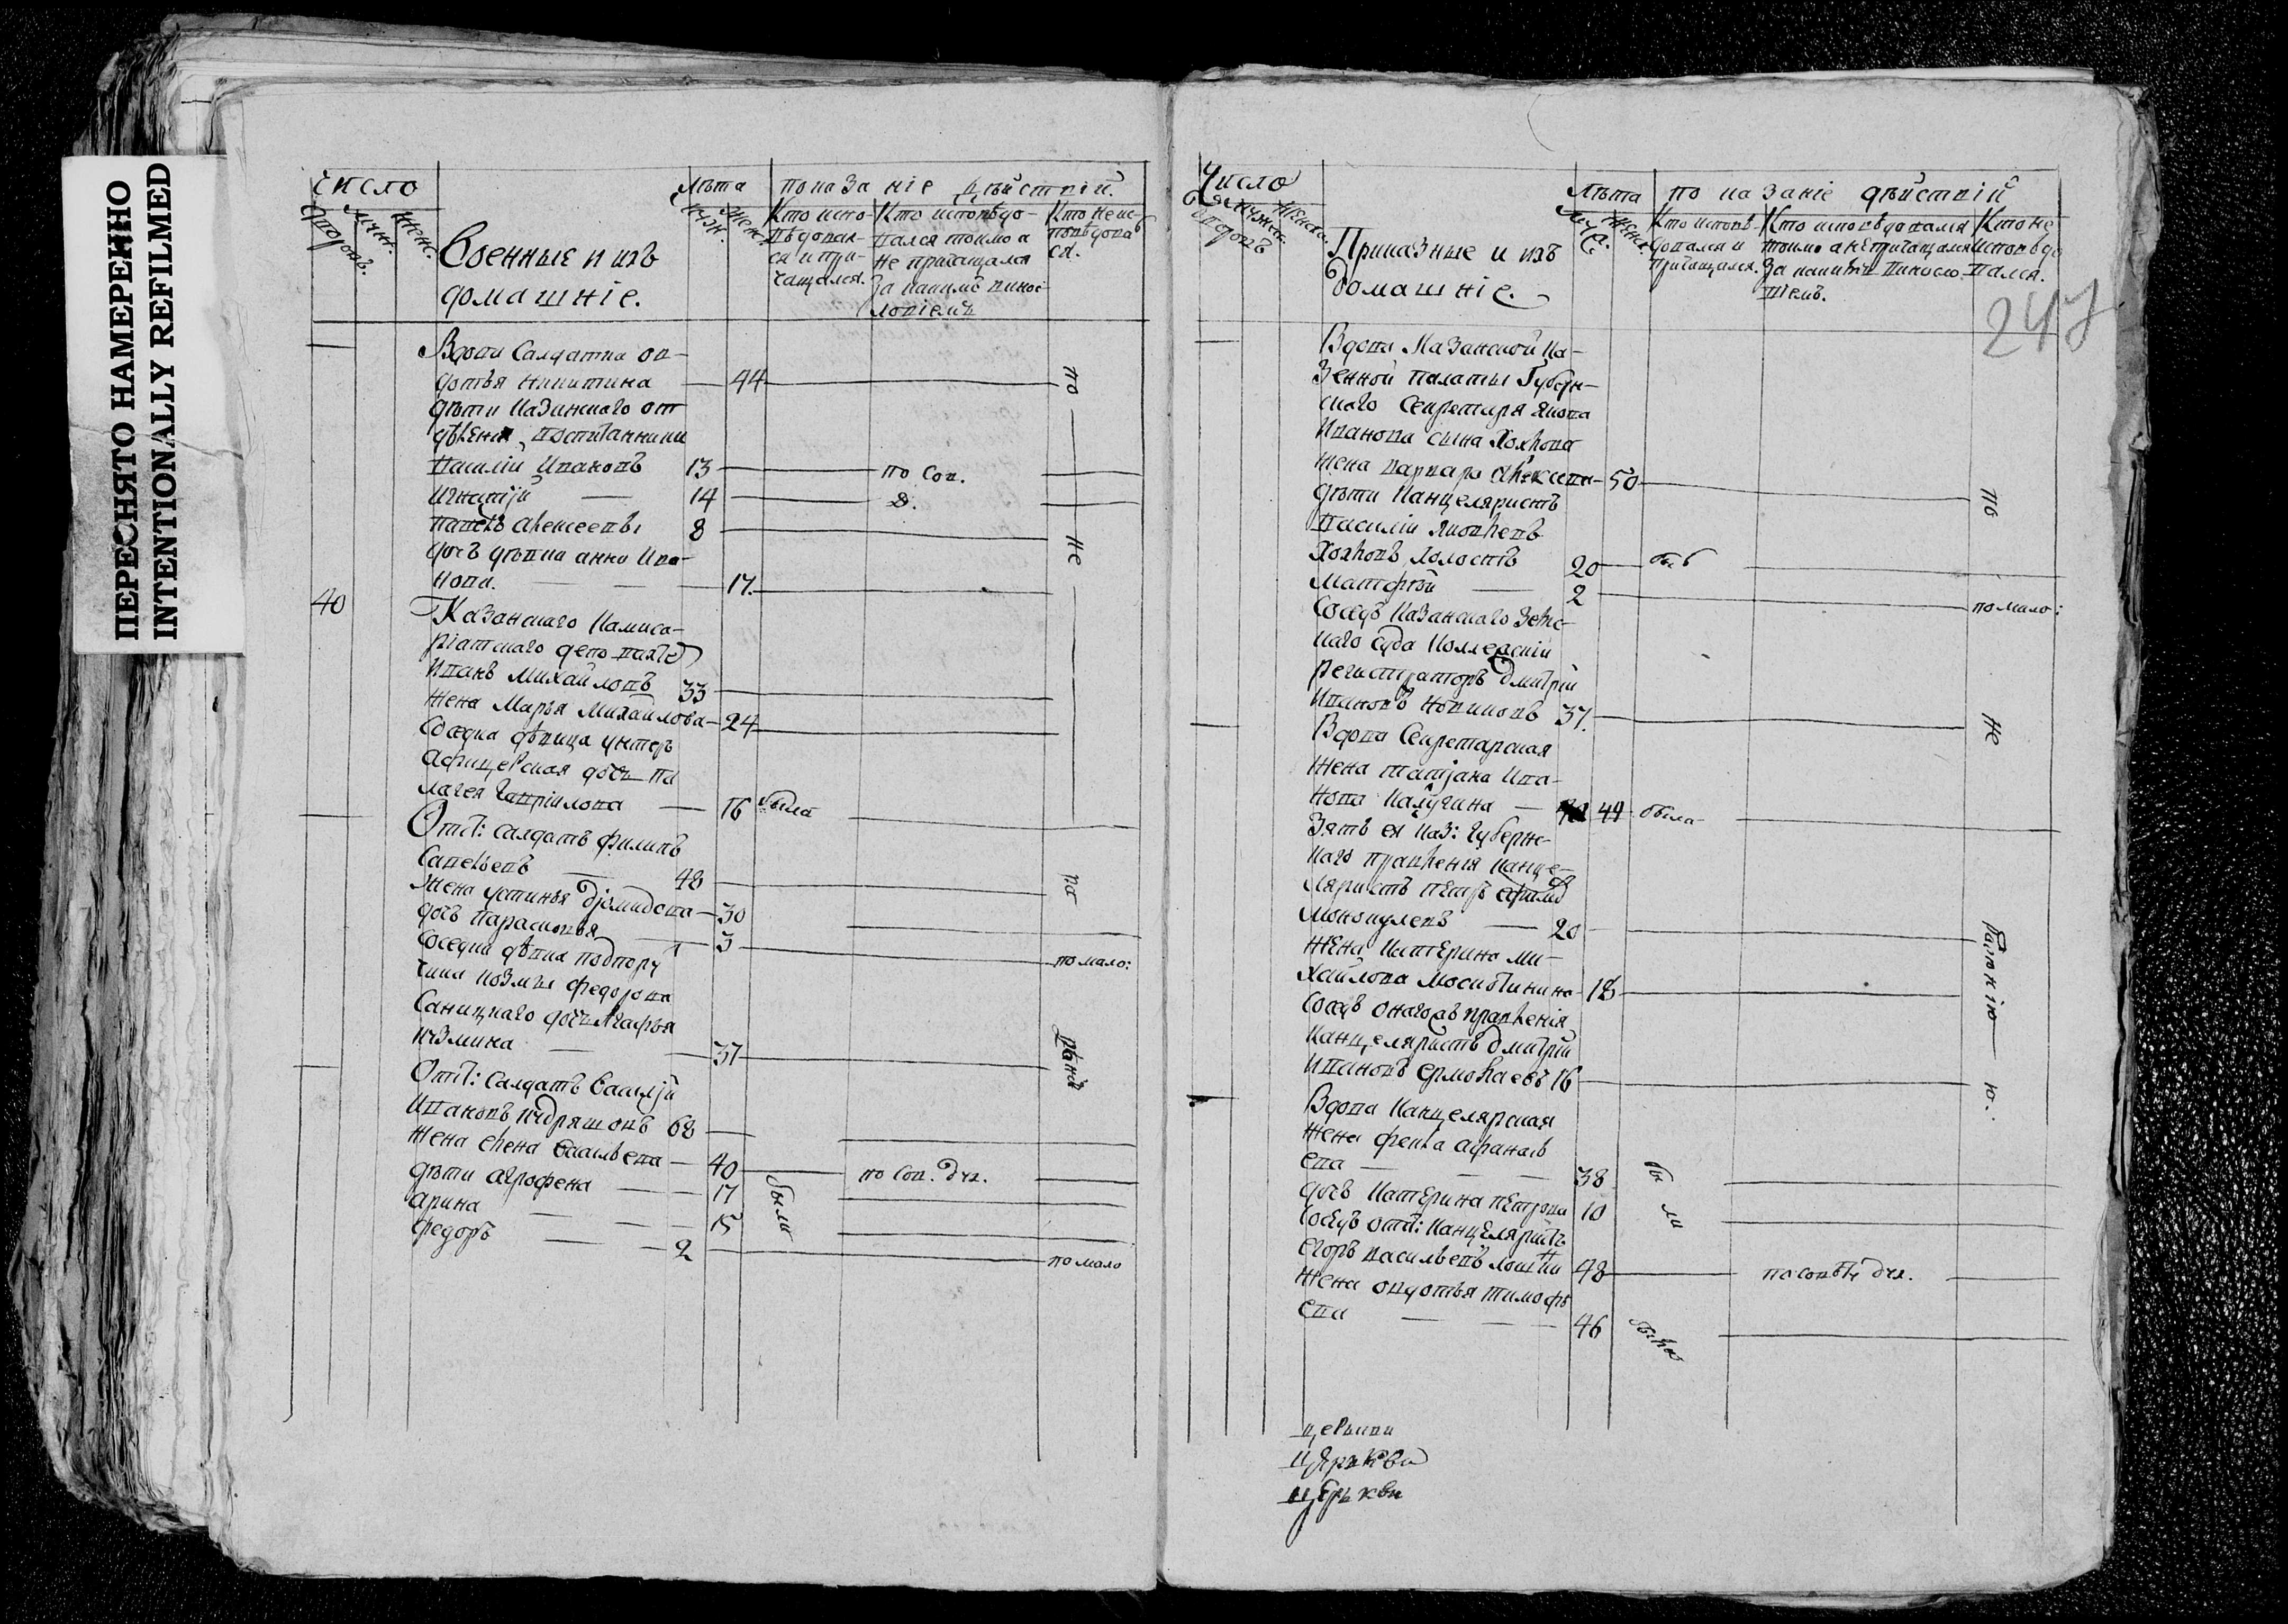 ПЕРЕСНЯТО НАМЕРЕННО
INTENTIONALLY REFILMED
Число
Дворовъ.
Муж.
Женс.
Военные и ихъ
домашніе.
Лѣта
Муж.
Жен.
показаніе дѣйствій.
Кто испо-
вѣдовал-
ся и при-
чащался.
Кто исповѣдо-
вался токмо а
не причащался
за какимъ винос-
ловіемъ
Кто не ис-
повѣдова
ся.
Вдова Салдатка ов-
дотья никитина 44
дѣти Казанского от
дѣления воспитанники
василій Ивановъ 13 по сов.
Игнатій 14 д.
павелъ алексеевъ 8
дочъ дѣвки анна Ива-
нова. 17.
по
не
40
Казанскаго Камиса-
ріатскаго депо вахте
Иванъ Михайловъ 33
жена Марья Михайлова 24
соседка дѣвица унтеръ
афицерская дочь пе
лагея гаврілова 16 была
Отст: салдатъ филипъ
савельевъ 48
Жена устинья діомидова 30
дочь парасковья 3 по мало:
соседка дѣвка подпору
чика козмы федорова
Саницкаго дочь Агафья
кузмина 37
ра
дѣнію
Отст: салдатъ василій
Ивановъ кудряшовъ 68
жена елена васильева 40 по сов. дух.
дѣти аграфена 17
арина 15
федоръ 2 по мало
были
Число
Дворовъ
Мужск.
Женск.
Приказные и ихъ
домашніе.
Лѣта
Муж.
Женс.
показаніе дѣйствій
Кто исповѣ-
довался и
причащался.
Кто исповѣдовался
токмо а не причащался
за какимъ винослов-
віемъ.
Кто не
исповѣдо
вался.
247
Вдова Казанской Ка-
зенной палаты Губерн-
скаго секретаря якова
Иванова сына Хохлова
жена варвара алексеева 50
дѣти канцеляристъ
василій яковлевъ
Хохловъ холостъ 20 былъ
матфей 2 по мало:
соседъ Казанскаго Земс-
каго суда Коллежский
регистраторъ дмитрій
Ивановъ новиковъ 37.
по
не
Вдова Секретарская
жена татіана Ива-
нова Калугина 44 была
Зять ея Каз: губернс-
каго правленія канце-
ляристъ петръ
20
жена катерина ми-
хайлова 18
соседъ онагожъ правленія
канцеляристъ дмитрій
Ивановъ ермолаевъ 16
радѣнію
ю.
Вдова Канцелярская
жена фекла афанась
ева 38
дочъ катерина петрова 10
были
соседъ отст: канцеляристъ
егоръ васильевъ 48 по совѣту дух.
жена овдотья тимофѣ
ева 46 была
церкви
церькви
церькви